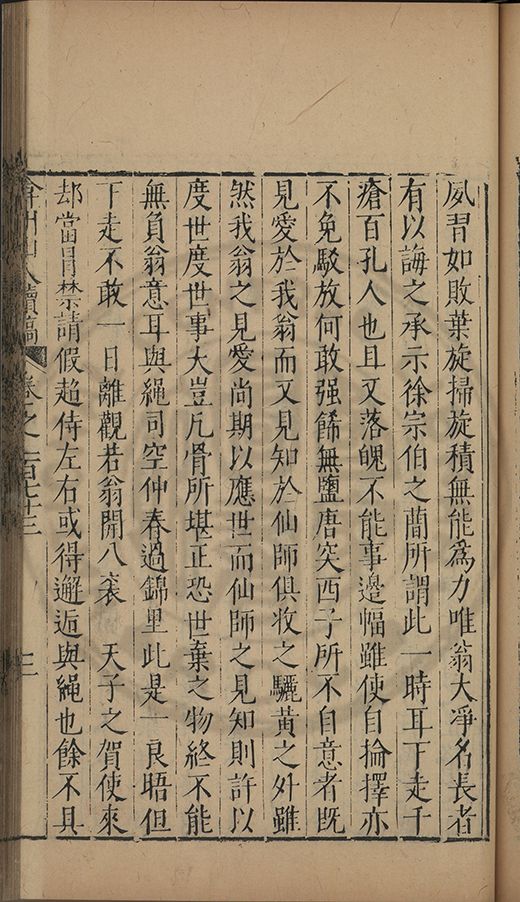 夙胃如敗葉旋掃旋積無能爲力唯翁大凈名長者
有以誨之承示徐宗伯之蘭所謂此一時耳下走千
瘡百孔人也且又落魄不能事邊幅雖使自掄擇亦
不免駁放何敢强餙無鹽唐突西子所不自意者既
見愛於我翁而又見知於仙師俱收之驪黃之外雖
然我翁之見愛尚期以應世而仙師之見知則許以
度世度世事大豈凡骨所堪正恐世棄之物終不能
無負翁意耳與繩司空仲春過錦里此是一良晤但
下走不敢一日離觀若翁開八袠　天子之賀使來
却當冒禁請假趍侍左右或得邂逅與繩也餘不具
弇州山人續稿　卷之一百七十三　三